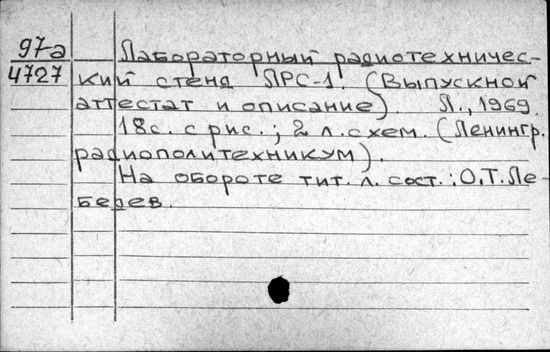 97-а
4727
Лабораторный радиотехничес-
кий стенд ЛРС-1. (Выпускной
аттестат и описание). Л., 1969.
18с. с рис.; 2 л. схем. (Ленингр.
радиополитехникум).
На обороте тит. л. сост.: О.Т. Ле-
бедев.